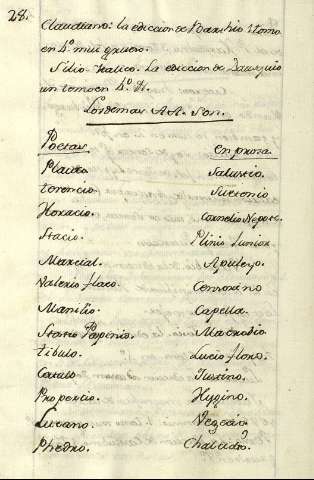 28.
Claudiano: la ediccion de Barthio 1 tomo
en 4º mui grueso.
Silio Italico. La ediccion de
un tomo en 4º.
Los demas AA. Son.
Poetas en prosa.
Plauto Salustio.
terencio Suetonio
Horacio. Cornelio Nepote.
Stacio Plinio Junior.
Marcial. Apuleyo.
Valerio flaco Censorino
Manilio Capella.
Stacio Papenio. Macrobio
tibulo. Lucio floro.
Catulo Justino.
Propercio. Hygino.
Lucano. Vegecio
Phedro. Chalcidio